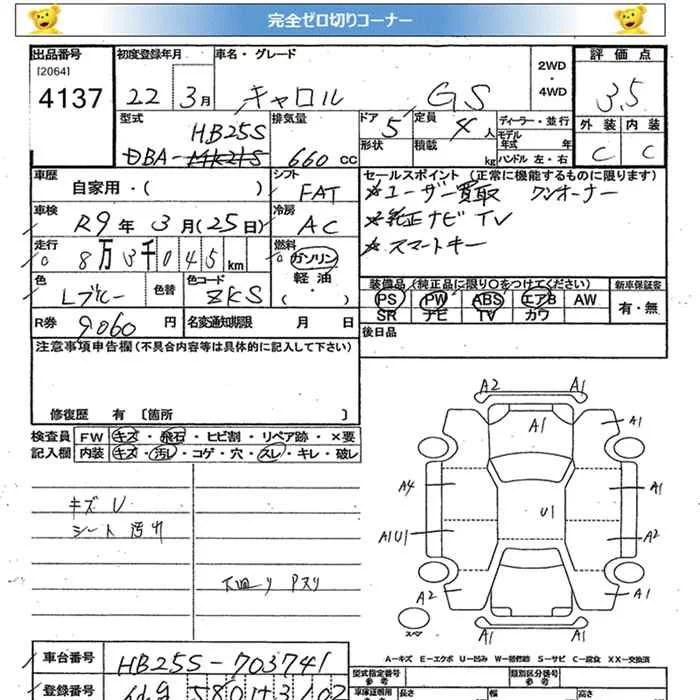 完全ゼロ切りコーナー
出品番号 初度登録年月 車名・グレード 評価点
[2064]
4137 22 3月 キャロル GS 2WD ・ 4WD 3.5
型式 HB25S DBA- 排気量 660 cc ドア 5 定員 4人 ディーラー・並行 外装 内装
形状 積載 kg モデル年式 年 ハンドル 左・右 C C
車歴 自家用・( ) シフト FAT セールスポイント (正常に機能するものに限ります)
車検 R9年 3月(25日) 冷房 AC ユーザー買取 ワンオーナー
純正ナビ TV
走行 8万3千045km 燃料 ガソリン 軽油 ・( ) スマートキー
色 Lブルー 色替 色コード ZKS 装備品 (純正品に限り○をつけてください) 新車保証書
PS PW ABS エアB AW 有・無
R券 9060円 名変通知期限 月 日 SR ナビ TV カワ
注意事項申告欄 (不具合内容等は具体的に記入して下さい) 後日品
修復歴 有 〔箇所 〕
検査員 FW キズ・飛石・ヒビ割・リペア跡・×要
記入欄 内装 キズ・汚レ・コゲ・穴・スレ・キレ・破レ
A2 A1
A1 A1
A4 A1
キズ U
U1
シート 汚れ
A1U1 A2
下廻り Pスリ
A2 A1
スペア
A-キズ E-エクボ U-凹み W-補修跡 S-サビ C-腐食 XX-交換済
車台番号 HB25S-703741 型式指定番号 参考 類別区分番号 参考
登録番号 580 車体証明用 参考 長さ 幅 高さ